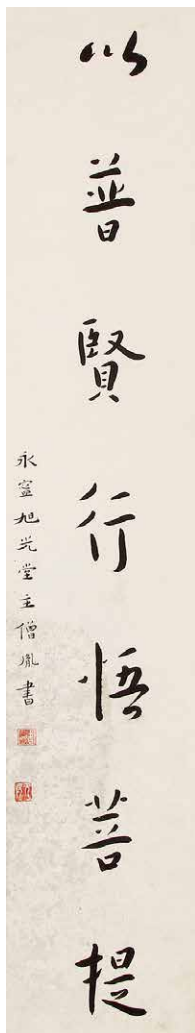 以普賢行悟菩提
永寧旭光堂主僧胤書